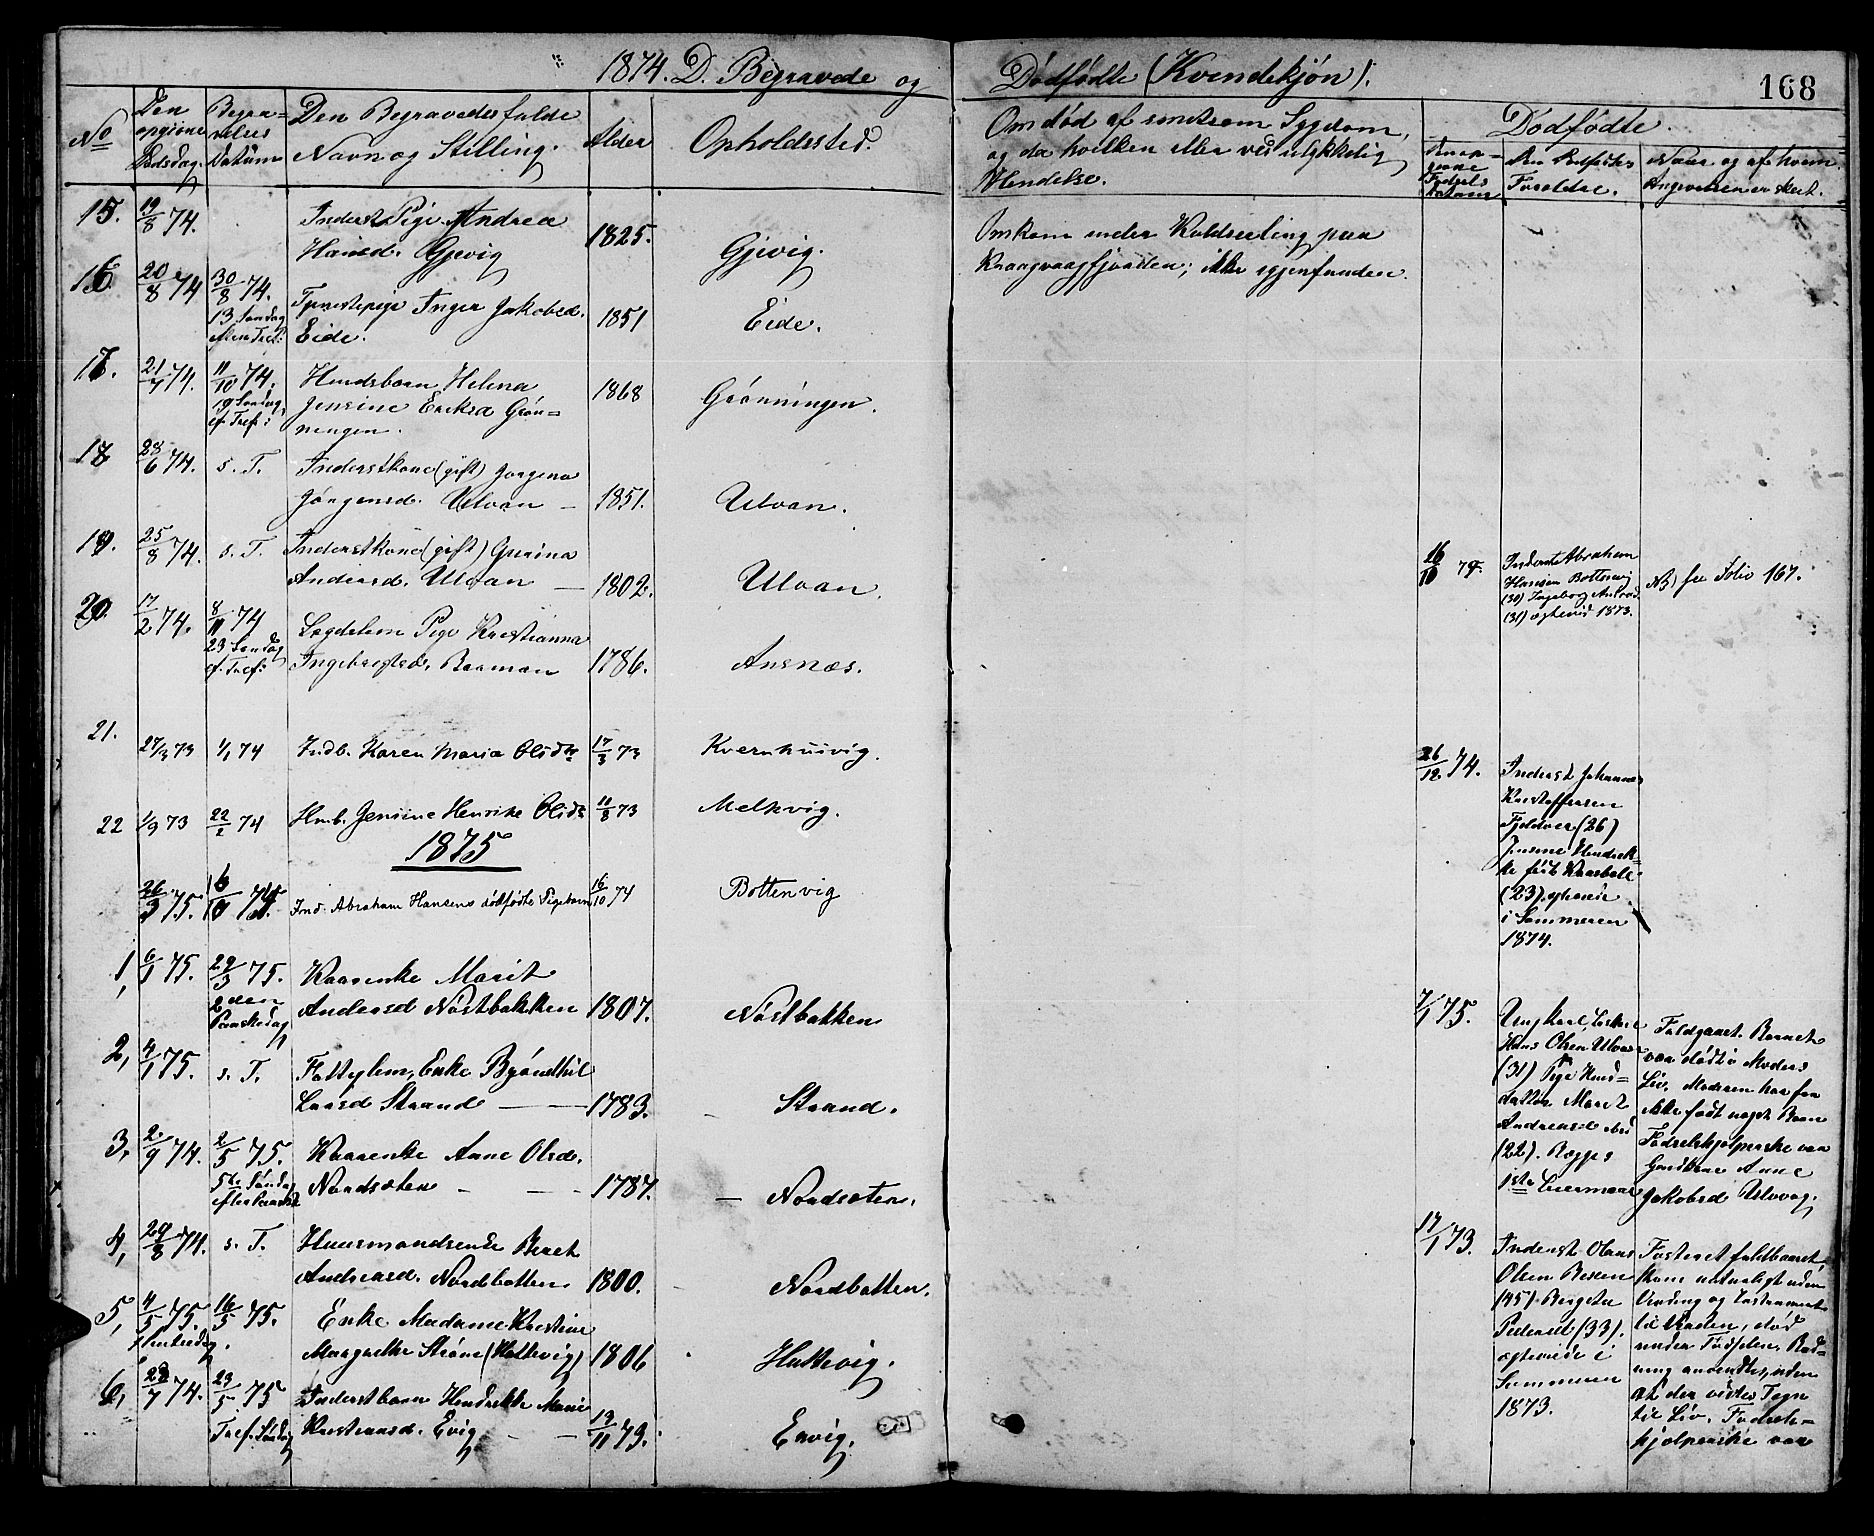 1874. D. Begravede og Dødfødte (Kvindekjøn).
168
No
Den
opgivne
Dødsdag.
Begra-
velses
Datum
Den Begravedes fulde
Navn og Stilling.
Alder
Opholdssted.
Om død af smitsom Sygdom,
og da hvilken eller ved ulykkelig
Hændelse.
Dødfødte.
Den Dødfødtes
Forældre.
Naar og af hvem
Angivelsen er skeet.
15. 19/8 74. Inderst Pige Andrea
Hansd. Gjevig 1825. Gjevig.
Omkom under Koldseiling paa
Kraagvaagfjorden; ikke igjenfunden.
16 20/8 74 30/8 74.
13 Søndag
efter Tref:
Tjenestepige Inger Jakobsd.
Eide. 1851 Eide.
17. 21/7 74. 11/10 74.
19 Søndag
ef. Tref:
Huusbarn Helena
Jensine Eriksd Grøn-
ningen. 1868 Grønningen.
18 28/6 74. s. T. Inderstkone (gift) Jorgena
Jørgensd. Ulvan - 1851. Ulvan.
19. 25/8 74. s. T. Inderstkone (gift) Gurina
Andersd. Ulvan - 1802. Ulvan.
16/10 74. Inderst Abraham
Hansen Bottenvig
(30) Ingeborg
(31) ægteviede 1873.
NB) see Folio 167.
20. 17/2 74. 8/11 74
23 Søndag
ef. Tref:
Lægdslem Pige Kristianna
Ingebrigtsd. 1786. Ansnæs.
21. 27/3 73 1/1 74 Indb. Karen Maria Olsdtr 17/3 73 Kvernhusvig.
26/12 74. Inderst Johannes
Kristoffersen
Fjeldvær (26)
Jensine Hendrik-
ke
(23)
i Sommeren
1874.
22 1/9 73 22/2 74 Hmb. Jensine Henrike Olsdtr 11/8 73 Melkvig.
1875
26/3 75. 16/10 74. Ind. Abraham Hansens dødfødte Pigebarn 16/10 74 Bottenvig
1, 6/1 75. 29/3 75.
2den
Paaskedag
Kaarenke Marit
Andersd Nøstbakken 1807. Nøstbakken
7/1 75. Ungkarl,
Hans Olsen Ulvan
(31) Pige Huus-
datter Marit
Andreasd
(22). Begges
1ste Leiermaal
Fuldbaaret. Barnet
var dødt i Moders
Liv. Moderen har før
ikke født noget Barn
Fødselshjælperske var
Gaardkone Anne
Jakobsd Ulvvag.
2, 4/1 75. s. T. Fattiglem, Enke Byønthil
Larsd Strand - - 1783. - Strand.
3, 2/9 74. 2/5 75.
5te Søndag
efter Paaske
Kaarenke Anne Olsd.
Nordsæten - - 1787. - Nordsæten.
4, 29/8 74. s. T. Huusmandsenke Beret
Andreasd. Nordbotten. 1800. Nordbotten.
17/1 73. Inderst Olaus
Olsen
(45) Bergete
Pedersd (33).
ægteviede i
Sommeren
1873.
Fosteret fuldbaaret,
kom naturligt uden
Vending og Instrumenter
til Verden, død
under Fødselen. Red-
ning anvendtes, uden
at der vistes Tegn
til Liv. Fødsels-
hjælperske var
5, 4/5 75. 16/5 75. Enke Madame Kirstine
Margrethe Strøm (Hattevig) 1806 Hattevig.
6, 28/7 74. 23/5 75
Tref. Søndag
Inderstbarn Hendrikke Marie
Kristiansd. Ervig - - 19/11 73. Ervig.